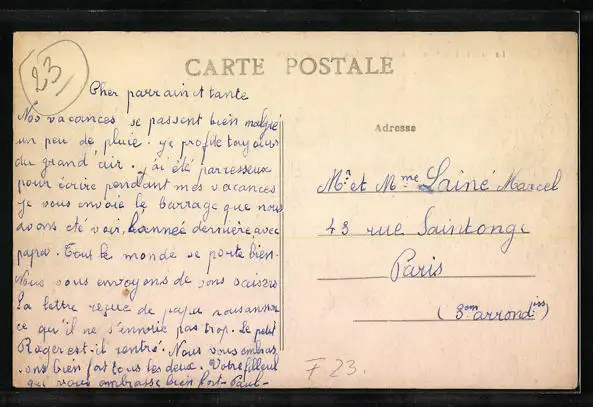 23
CARTE POSTALE
Cher parrain et tante
Nos vacances se passent bien malgré
un peu de pluie. je profite toujours
du grand air. j'ai été parresseux
pour écrire pendant mes vacances
je vous envoie le barrage que nous
avons été voir, l'année dernière, avec
papa. Tous le monde se porte bien.
Nous vous envoyons de bons baisers
La lettre reçue de papa nous
ce qu'il ne s'ennuie pas trop. Le petit
Roger est-il rentré. Nous vous embras
ons bien fort tous les deux. Votre filleul
qui vous embrasse bien fort - Paul -
Adresse
Mr. et Mme Lainé Marcel
43 rue Saintonge
Paris
(3em arrondiss)
F 23.